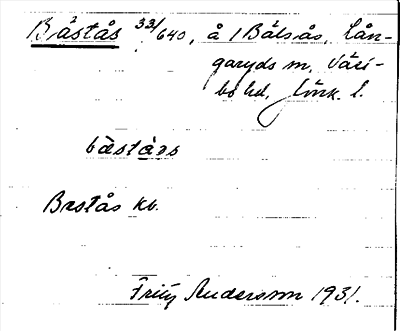 Båstås 33/640, å /Bålsås, Lån-
garyds sn, Väs-
bo hd, Jönk. l.
bås̀tås
Bastås kb.
Fritz Andersson 1931.